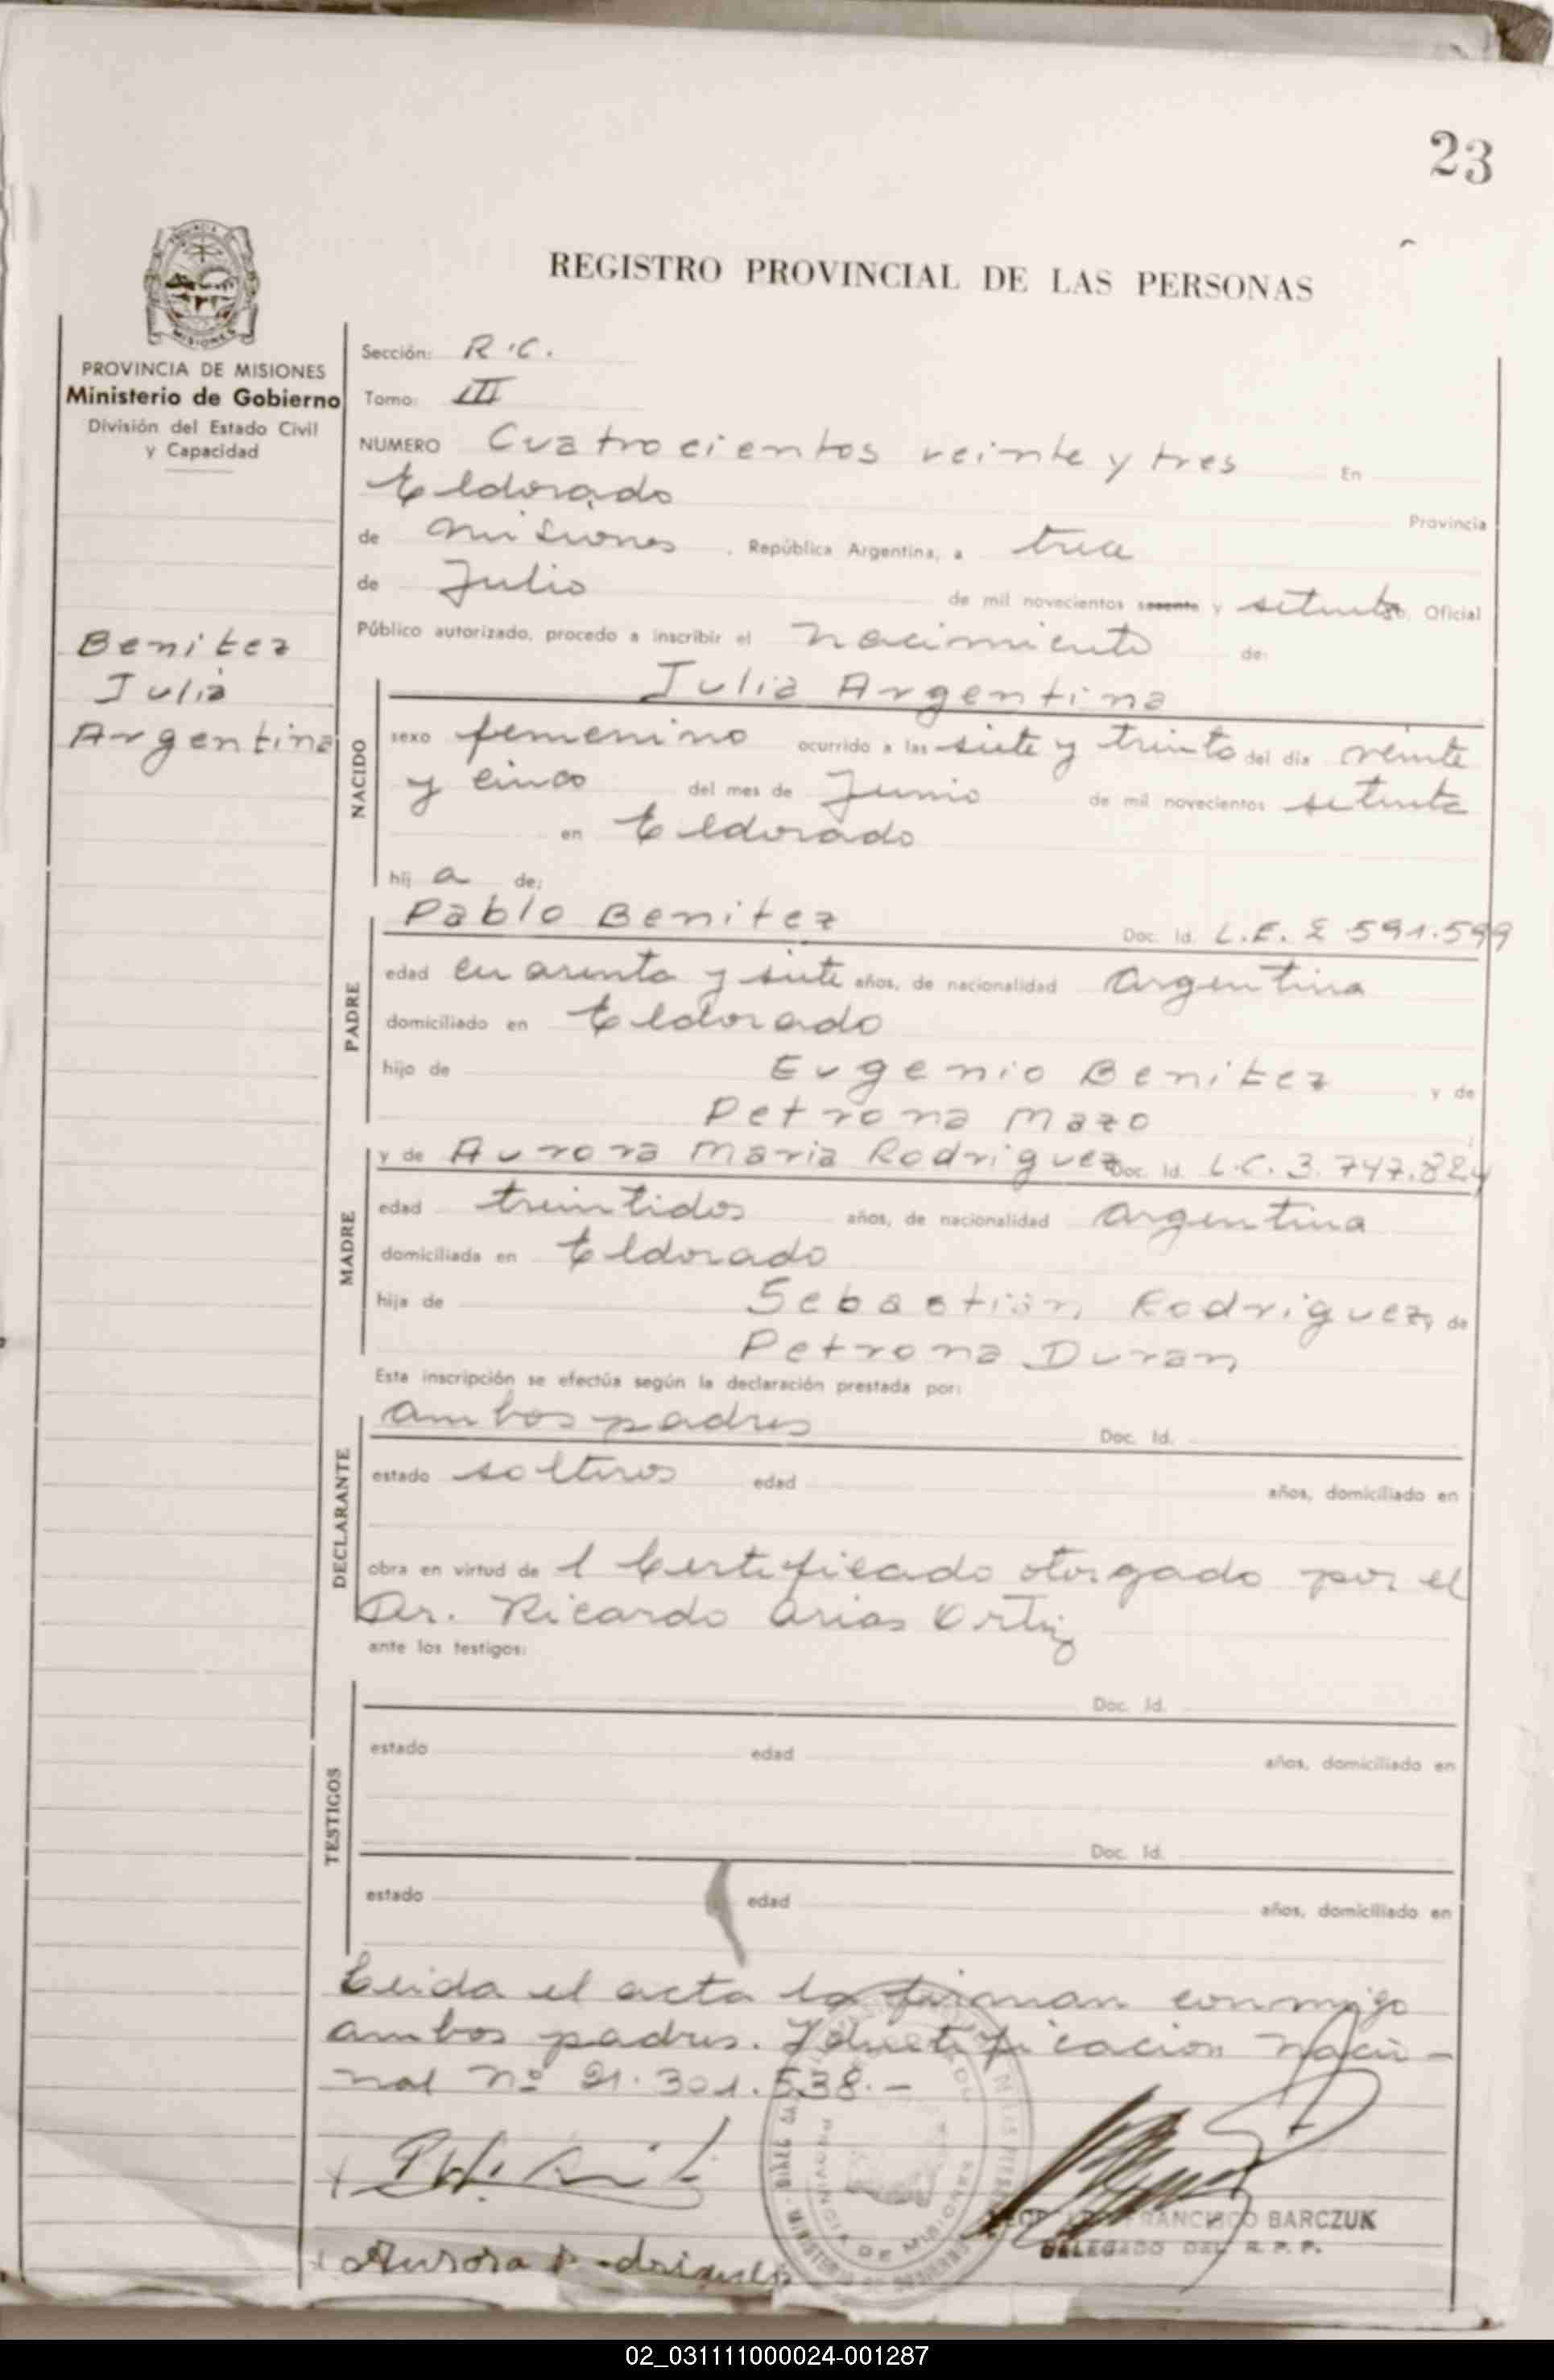 23
REGISTRO PROVINCIAL DE LAS PERSONAS
MISIONES
PROVINCIA DE MISIONES
Ministerio de Gobierno
División del Estado Civil
y Capacidad
Benitez
Julia
Argentina
Sección: R.C.
Tomo: III
NUMERO Cuatrocientos veinte y tres En
Eldorado
Provincia
de Misiones, República Argentina, a trece
de Julio de mil novecientos sesenta y setenta, Oficial
Público autorizado, procedo a inscribir el nacimiento de:
Julia Argentina
NACIDO
sexo femenino ocurrido a las siete y treinta del día veinte
y cinco del mes de Junio de mil novecientos setenta
en Eldorado
hij a de:
PADRE
Pablo Benitez Doc. Id. L.E. 591.599
edad cuarenta y siete años, de nacionalidad Argentina
domiciliado en Eldorado
hijo de Eugenio Benitez y de
Petrona Mazo
MADRE
y de Aurora Maria Rodriguez Doc. Id. L.C. 3.747.824
edad treintidos años, de nacionalidad Argentina
domiciliada en Eldorado
hija de Sebastián Rodriguez y de
Petrona Duran
Esta inscripción se efectúa según la declaración prestada por:
DECLARANTE
ambos padres Doc. Id.
estado solteros edad años, domiciliado en
obra en virtud de 1 Certificado otorgado por el
Dr. Ricardo Arias Ortiz
ante los testigos:
TESTIGOS
Doc. Id.
estado edad años, domiciliado en
Doc. Id.
estado edad años, domiciliado en
Leida el acta la firman conmigo
ambos padres. Identificacion Nacio-
nal nº 21.301.538.-
PROVINCIA DE MISIONES
FRANCISCO BARCZUK
DELEGADO DEL R. P. P.
Aurora Rodriguez
02_031111000024-001287